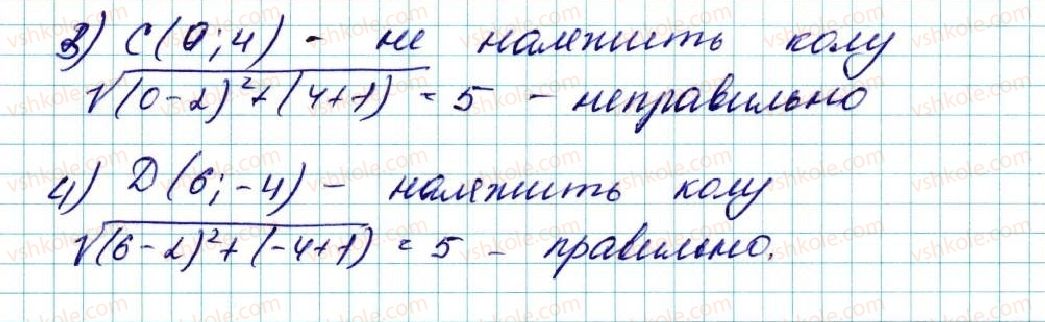 3) C(0;4) - не належить колу
√(0-2)²+(4+1) = 5 - неправильно
4) D(6;-4) - належить колу
√(6-2)²+(-4+1) = 5 - правильно.